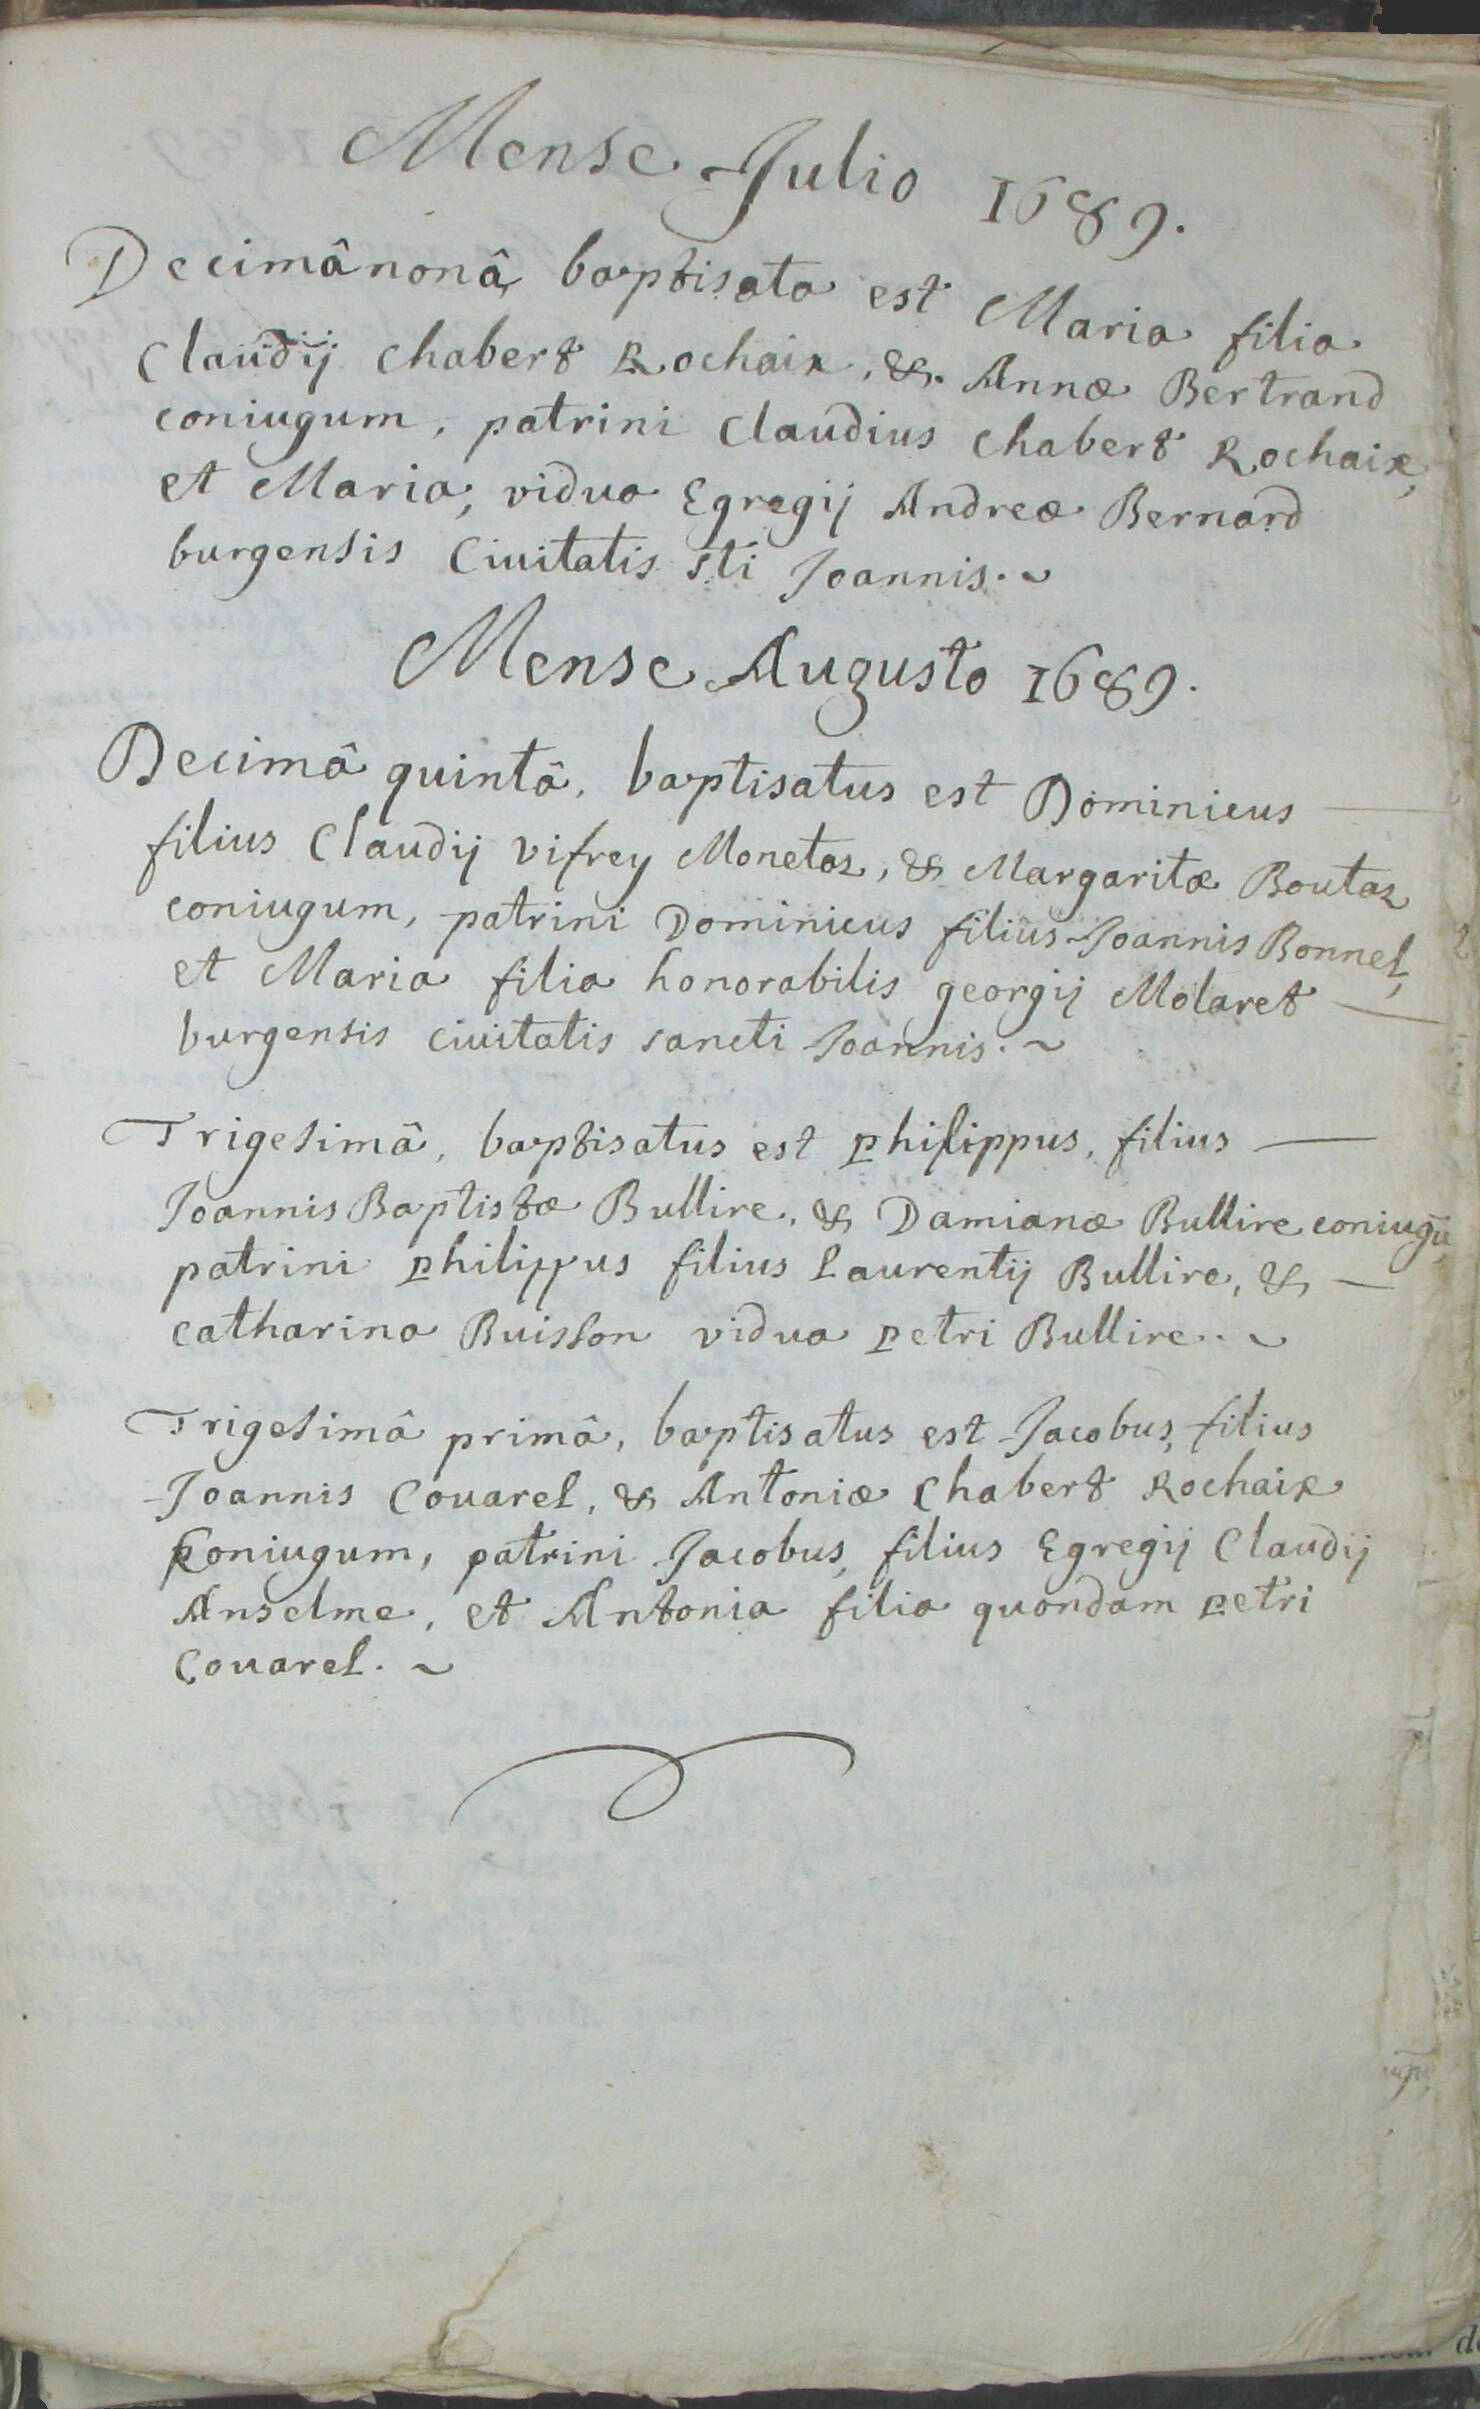 Mense Julio 1689.
Decimânonâ baptisata est Maria filia
Claudij Chabert Rochaix, &. Annæ Bertrand
coniugum, patrini Claudius Chabert Rochaix,
et Maria, vidua Egregij Andreæ Bernard
burgensis Ciuitatis sti Joannis. ~
Mense Augusto 1689.
Decimâ quintâ, baptisatus est Dominicus —
filius Claudij vifrey Monetaz, & Margaritæ Boutaz
coniugum, patrini Dominicus filius Joannis Bonnel,
et Maria filia honorabilis georgij Molaret —
burgensis ciuitatis sancti Joannis. ~
Trigesimâ, baptisatus est philippus, filius —
Joannis Baptistæ Bullire, & Damianæ Bullire coniugū
patrini philippus filius Laurentij Bullire, & —
catharina Buisson vidua petri Bullire.. ~
Trigesimâ primâ, baptisatus est Jacobus, filius
Joannis Couarel, & Antoniæ Chabert Rochaix
Coniugum, patrini Jacobus, filius Egregij Claudij
Anselme, et Antonia filia quondam petri
Couarel. ~